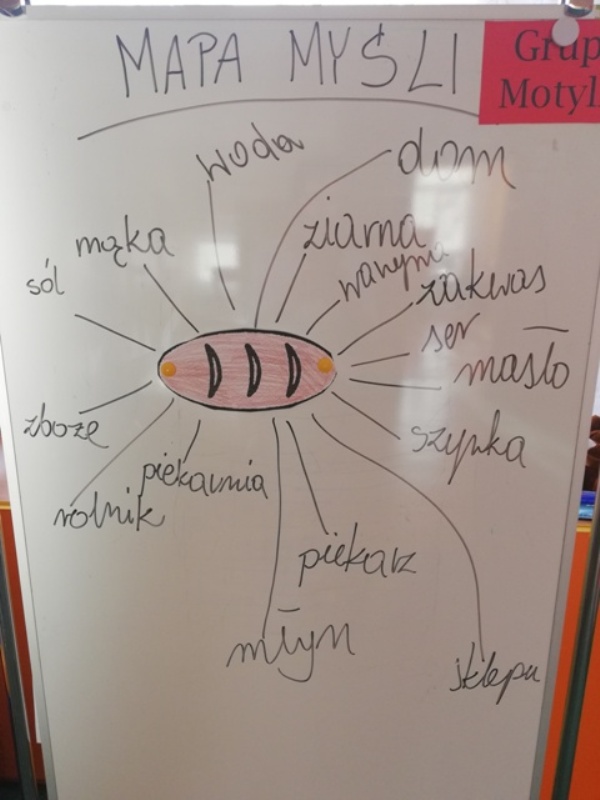 MAPA MYŚLI
Grup
Motyl
woda
dom
mąka
ziarna
warzywa
sól
zakwas
ser
masło
zboże
szynka
piekarnia
rolnik
piekarz
młyn
sklepu